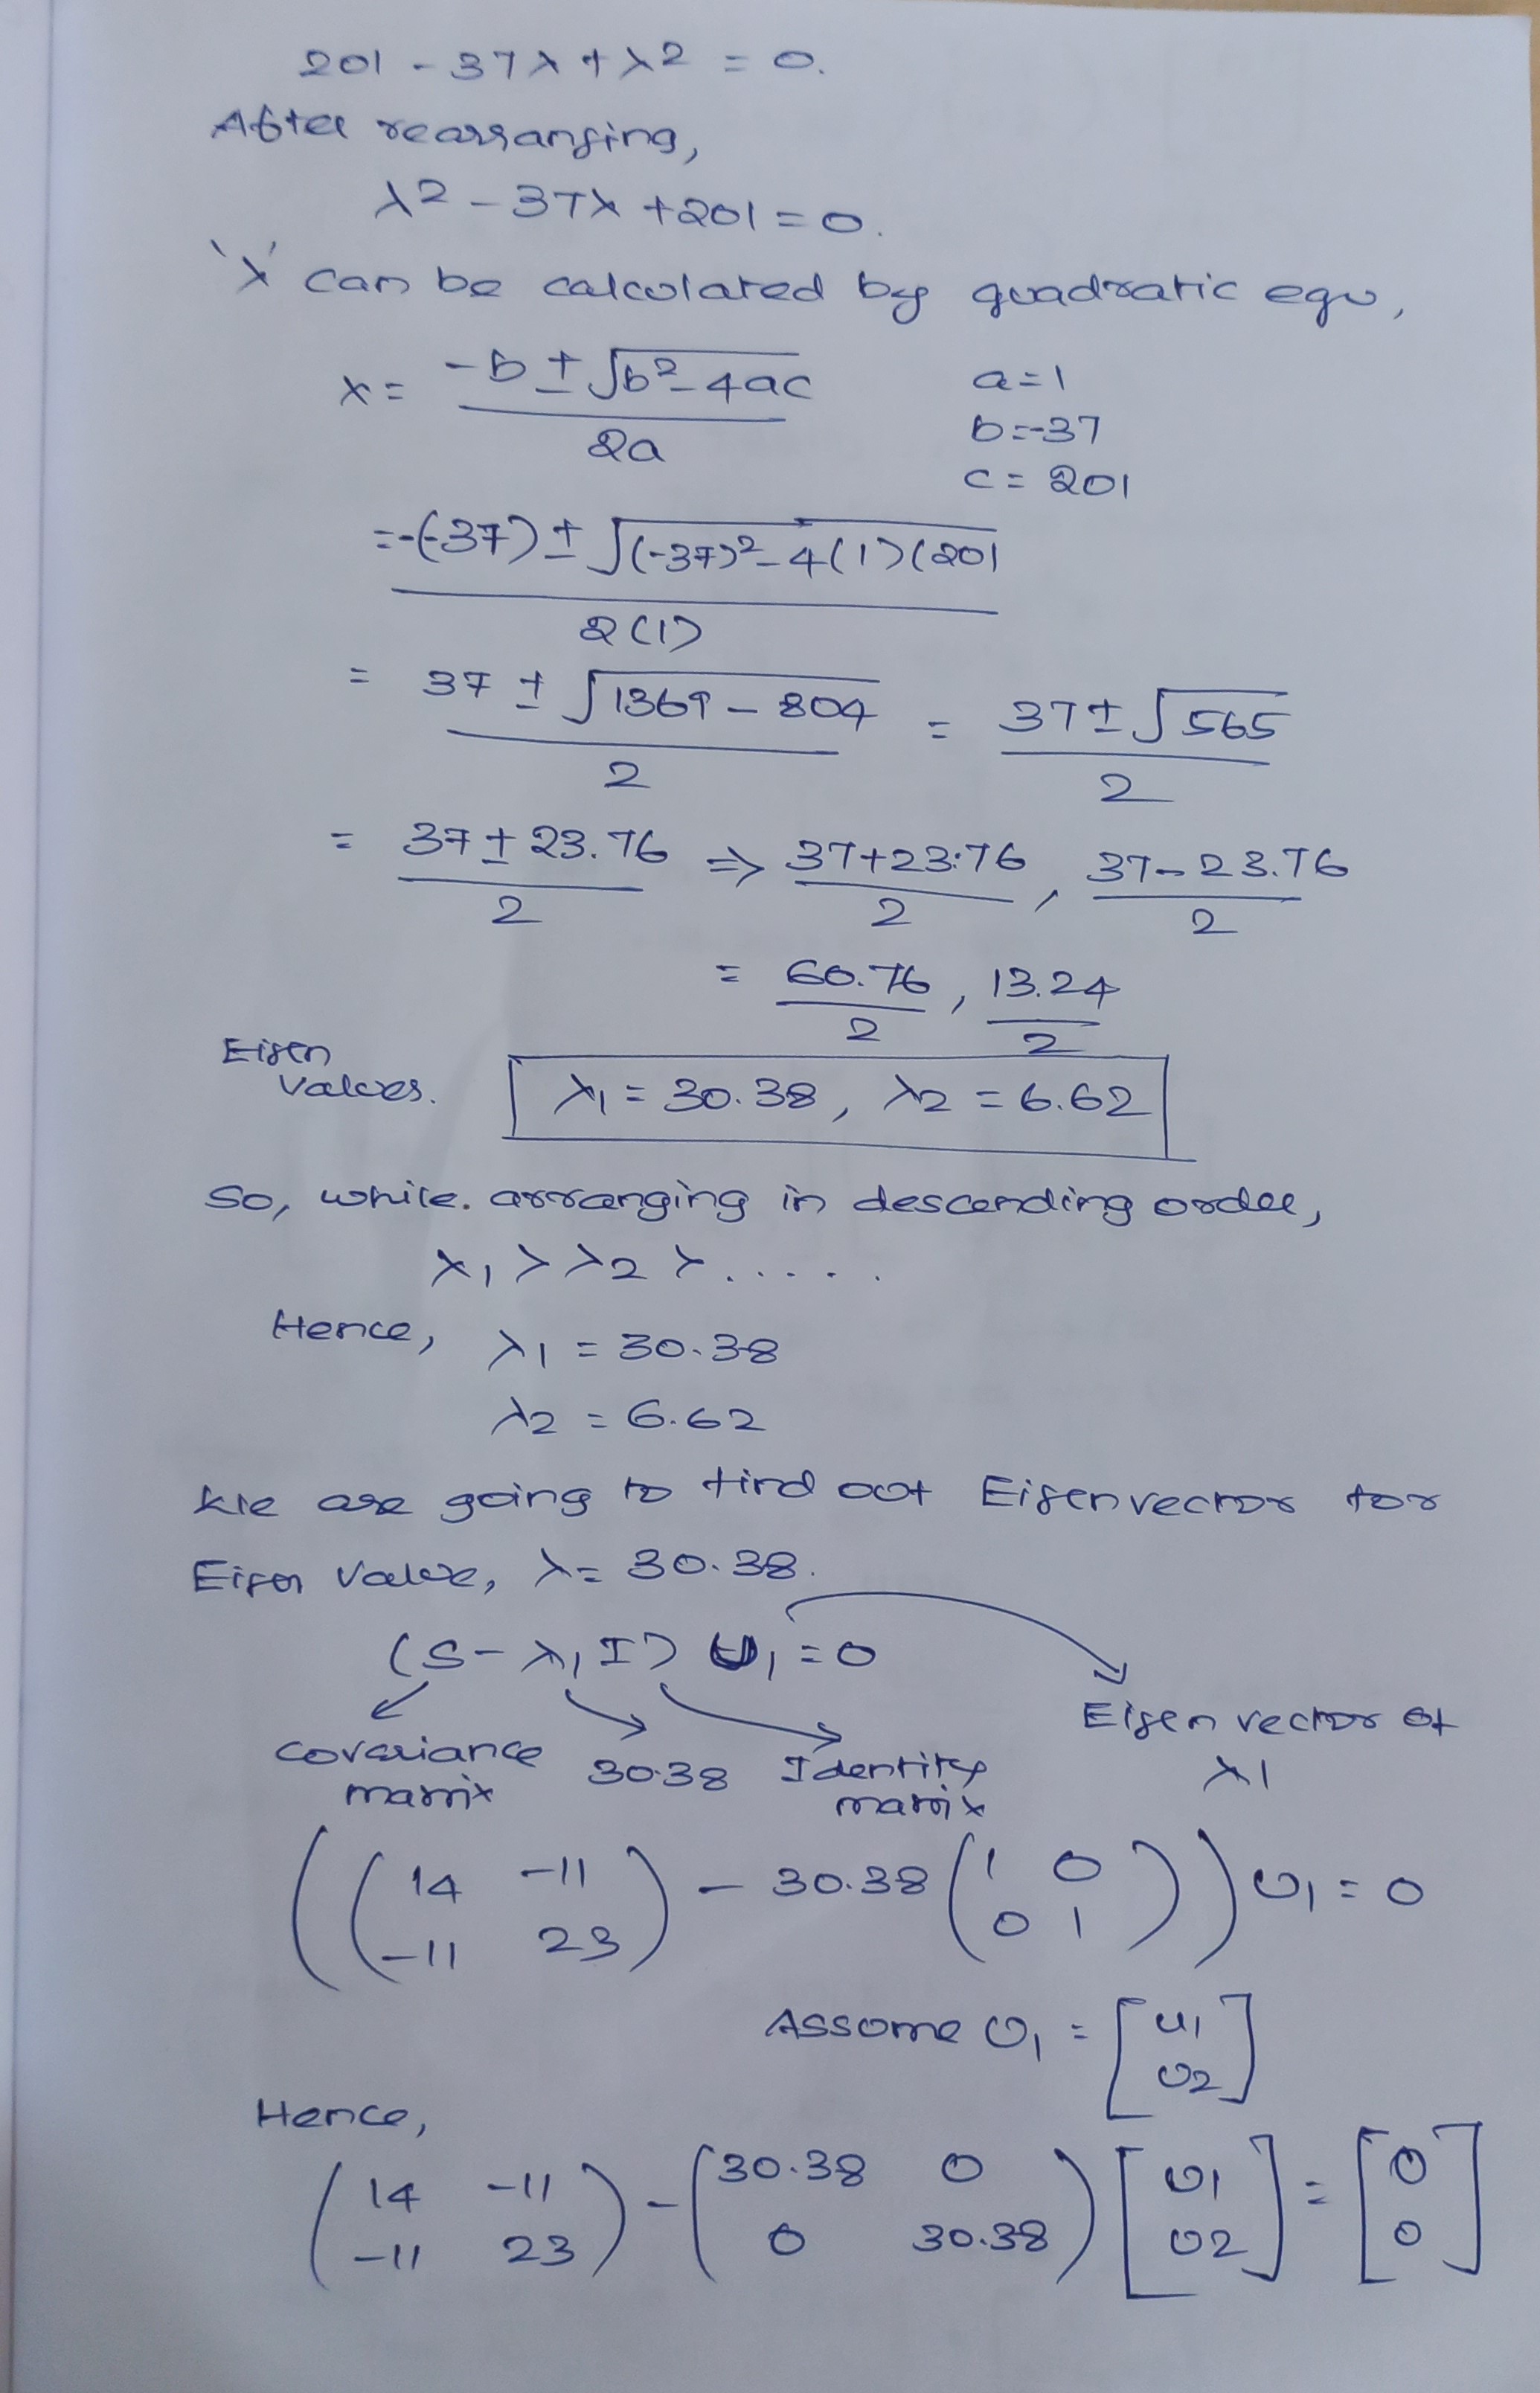 201 - 37λ + λ2 = 0.
After rearranging,
λ2 - 37λ + 201 = 0.
'λ' can be calculated by quadratic equ,
λ = -b ± √b²-4ac / 2a
a = 1
b = -37
c = 201
= -(-37) ± √(-37)²-4(1)(201 / 2(1)
= 37 ± √1369 - 804 / 2 = 37 ± √565 / 2
= 37 ± 23.76 / 2 ⇒ 37+23.76 / 2 , 37-23.76 / 2
= 60.76 / 2 , 13.24 / 2
Eigen
Values.
λ1 = 30.38, λ2 = 6.62
So, while. arranging in descending order,
λ1 > λ2 > .....
Hence, λ1 = 30.38
λ2 = 6.62
We are going to find out Eigenvector for
Eigen Value, λ = 30.38.
(S - λ1 I) U1 = 0
Covariance
matrix
30.38
Identity
matrix
Eigen vector of
λ1
((14 -11
-11 23) - 30.38 (1 0
0 1)) U1 = 0
Assume U1 = [u1
u2]
Hence,
(14 -11
-11 23) - (30.38 0
0 30.38) [u1
u2] = [0
0]